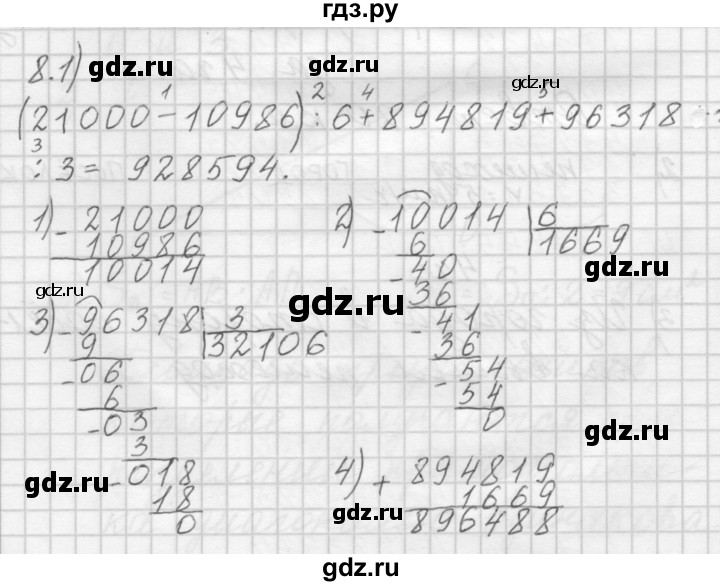 гдз.ру
8.1)
gdz.ru
gdz.ru
1 2 4 5
(21000-10986):6+894819+96318:
3
:3=928594.
1) -21000
10986
10014
2) -10014 6
6 1669
-40
36
-41
36
-54
54
0
gdz.ru
gdz.ru
gdz.ru
3) -96318 3
9 32106
-06
6
-03
3
-018
18
0
gdz.ru
gdz.ru
4) +894819
1669
896488
gdz.ru
гдз.ру